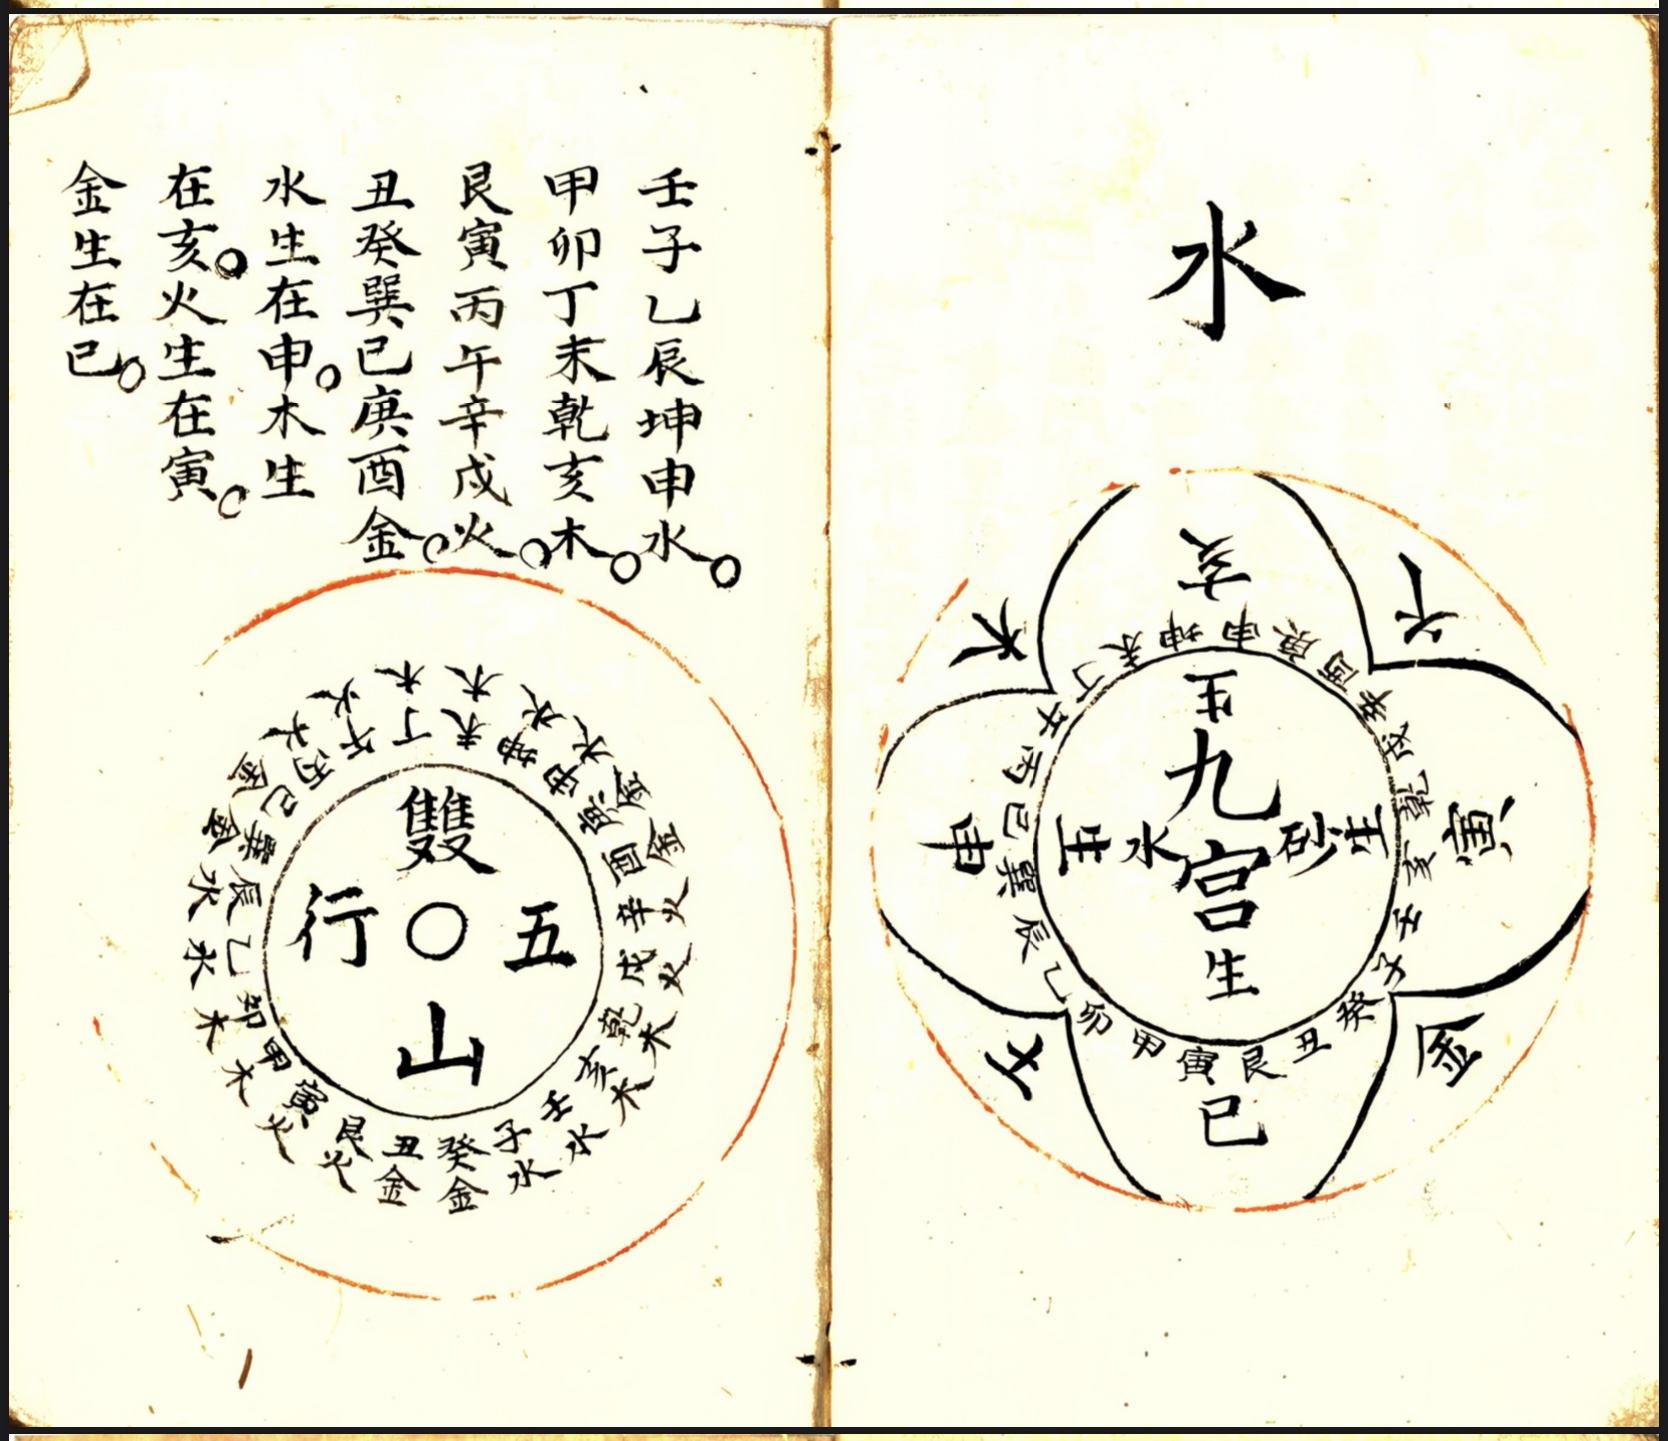 水
亥
寅
巳
申
金
火
木
丁未坤申庚酉辛戌乾亥壬子癸丑艮寅甲卯乙辰巽巳丙午
生
九宫
水
砂
生
生
生
壬子乙辰坤申水○
甲卯丁未乾亥木○
艮寅丙午辛戌火○
丑癸巽巳庚酉金○
水生在申○木生
在亥○火生在寅○
金生在巳○
木木水水金金火火木木水水金金火火木木水水金金火火
丁未坤申庚酉辛戌乾亥壬子癸丑艮寅甲卯乙辰巽巳丙午
雙
山
五
行